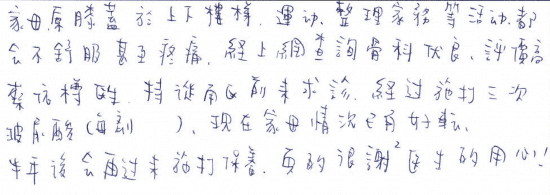 家母原膝蓋於上下樓梯、運動、整理家務等活動、都
會不舒服甚至疼痛、經上網查詢骨科優良、評價高
蔡 醫生、特從南 前來求診、經过施打三次
玻尿酸( )、現在家母情況已有好転、
半年後會再过來施打保養、真的很謝²医生的用心!